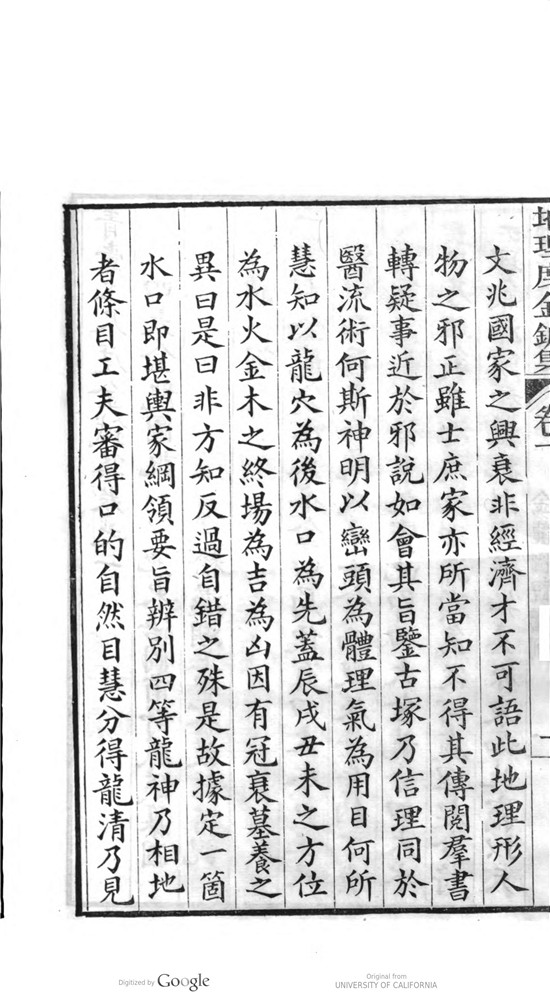 文兆國家之興衰非經濟才不可語此地理形人
物之邪正雖士庶家亦所當知不得其傳閱羣書
轉疑事近於邪說如會其旨鑒古塚乃信理同於
醫流術何斯神明以巒頭為體理氣為用目何所
慧知以龍穴為後水口為先蓋辰戌丑未之方位
為水火金木之終場為吉為凶因有冠衰墓養之
異曰是曰非方知反過自錯之殊是故據定一箇
水口即堪輿家綱領要旨辨別四等龍神乃相地
者條目工夫審得口的自然目慧分得龍清乃見
Digitized by Google
Original from
UNIVERSITY OF CALIFORNIA